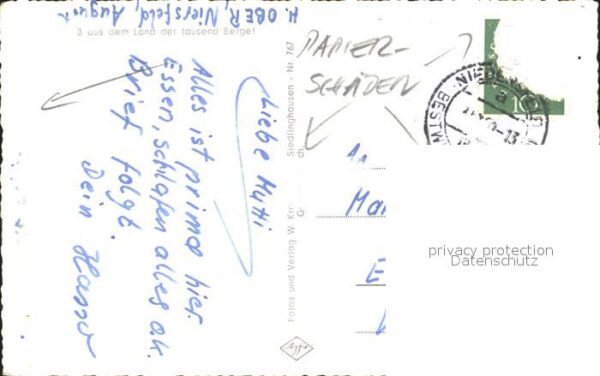 H. OBER, Niersfeld, August
ß aus dem Land der tausend Berge!
Liebe Mutti
Alles ist prima hier.
Essen, schlafen alles ok.
Brief folgt.
Dein Hasso
Siedlinghausen - Nr. 767
Fotos und Verlag W. Kr
PAPIER-
SCHÄDEN
10
BESTW
privacy protection
Datenschutz